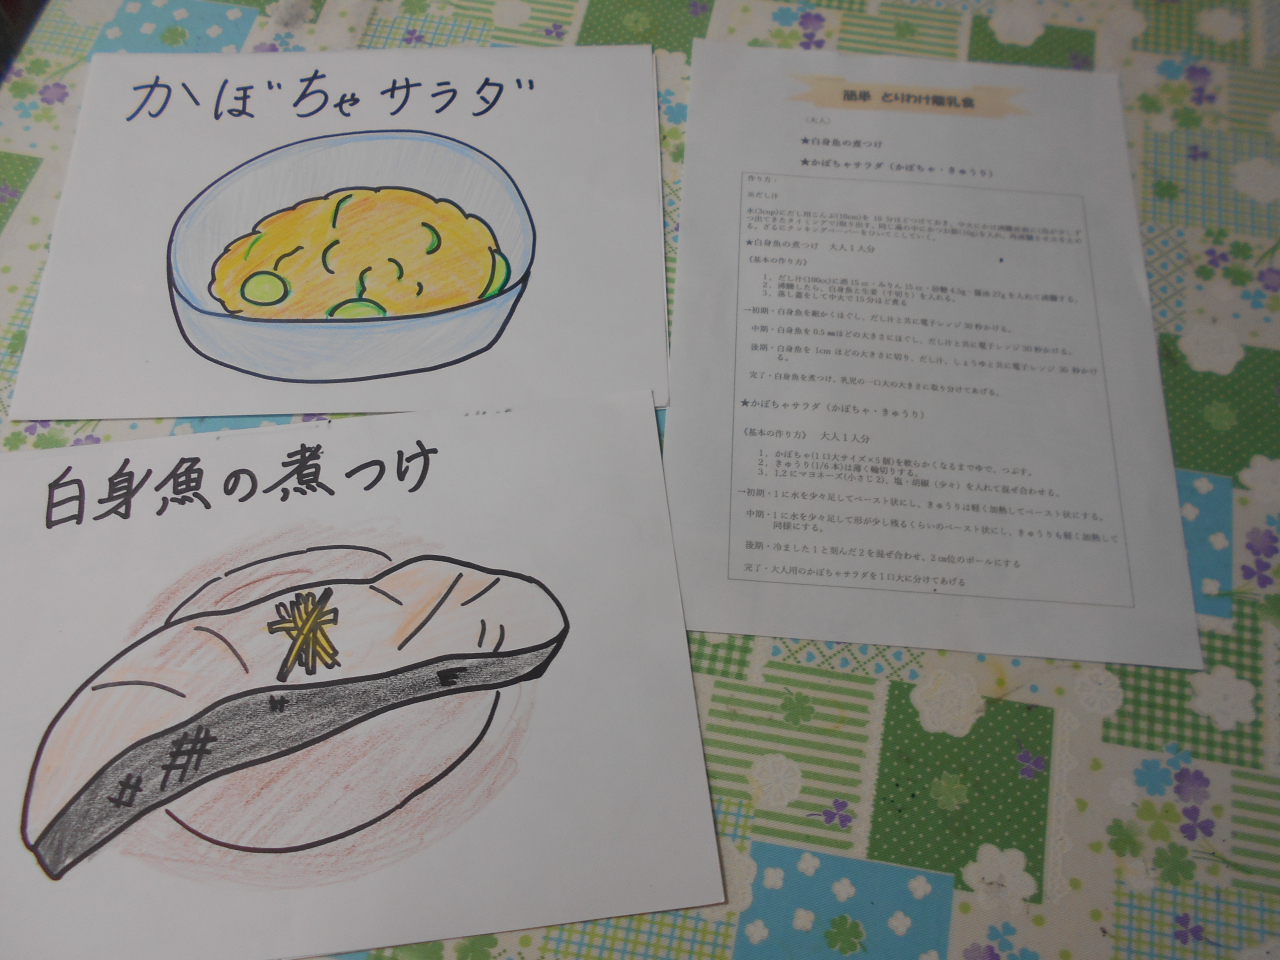 かぼちゃサラダ
白身魚の煮つけ
簡単 とりわけ離乳食
〈大人〉
★白身魚の煮つけ
★かぼちゃサラダ（かぼちゃ・きゅうり）
作り方：
※だし汁
水(3cup)にだし用こんぶ(10cm)を 10 分ほどつけておき、
つ出てきたタイミングで取り出す。
る。ざるにクッキングペーパーをひいてこしていく。
★白身魚の煮つけ 大人１人分
《基本の作り方》
1．だし汁(100cc)に酒 15 ㏄・みりん 15 ㏄・砂糖 4.5g・醤油 27g を入れて沸騰する。
2．沸騰したら、白身魚と生姜（千切り）を入れる。
3．落し蓋をして中火で 15 分ほど煮る
→初期・白身魚を細かくほぐし、だし汁と共に電子レンジ 30 秒かける。
中期・白身魚を 0.5 ㎜ほどの大きさにほぐし、だし汁と共に電子レンジ 30 秒かける。
後期・白身魚を 1cm ほどの大きさに切り、だし汁、しょうゆと共に電子レンジ 30 秒かけ
る。
完了・白身魚を煮つけ、乳児の一口大の大きさに取り分けてあげる。
★かぼちゃサラダ（かぼちゃ・きゅうり）
《基本の作り方》 大人１人分
1．かぼちゃ(1 口大サイズ×5 個)を軟らかくなるまでゆで、つぶす。
2．きゅうり(1/6 本)は薄く輪切りする。
3．1,2 にマヨネーズ(小さじ 2)、塩・胡椒（少々）を入れて混ぜ合わせる。
→初期・1 に水を少々足してペースト状にし、きゅうりは軽く加熱してペースト状にする。
中期・1 に水を少々足して形が少し残るくらいのペースト状にし、きゅうりも軽く加熱して
同様にする。
後期・冷ました 1 と刻んだ 2 を混ぜ合わせ、2 ㎝位のボールにする
完了・大人用のかぼちゃサラダを 1 口大に分けてあげる